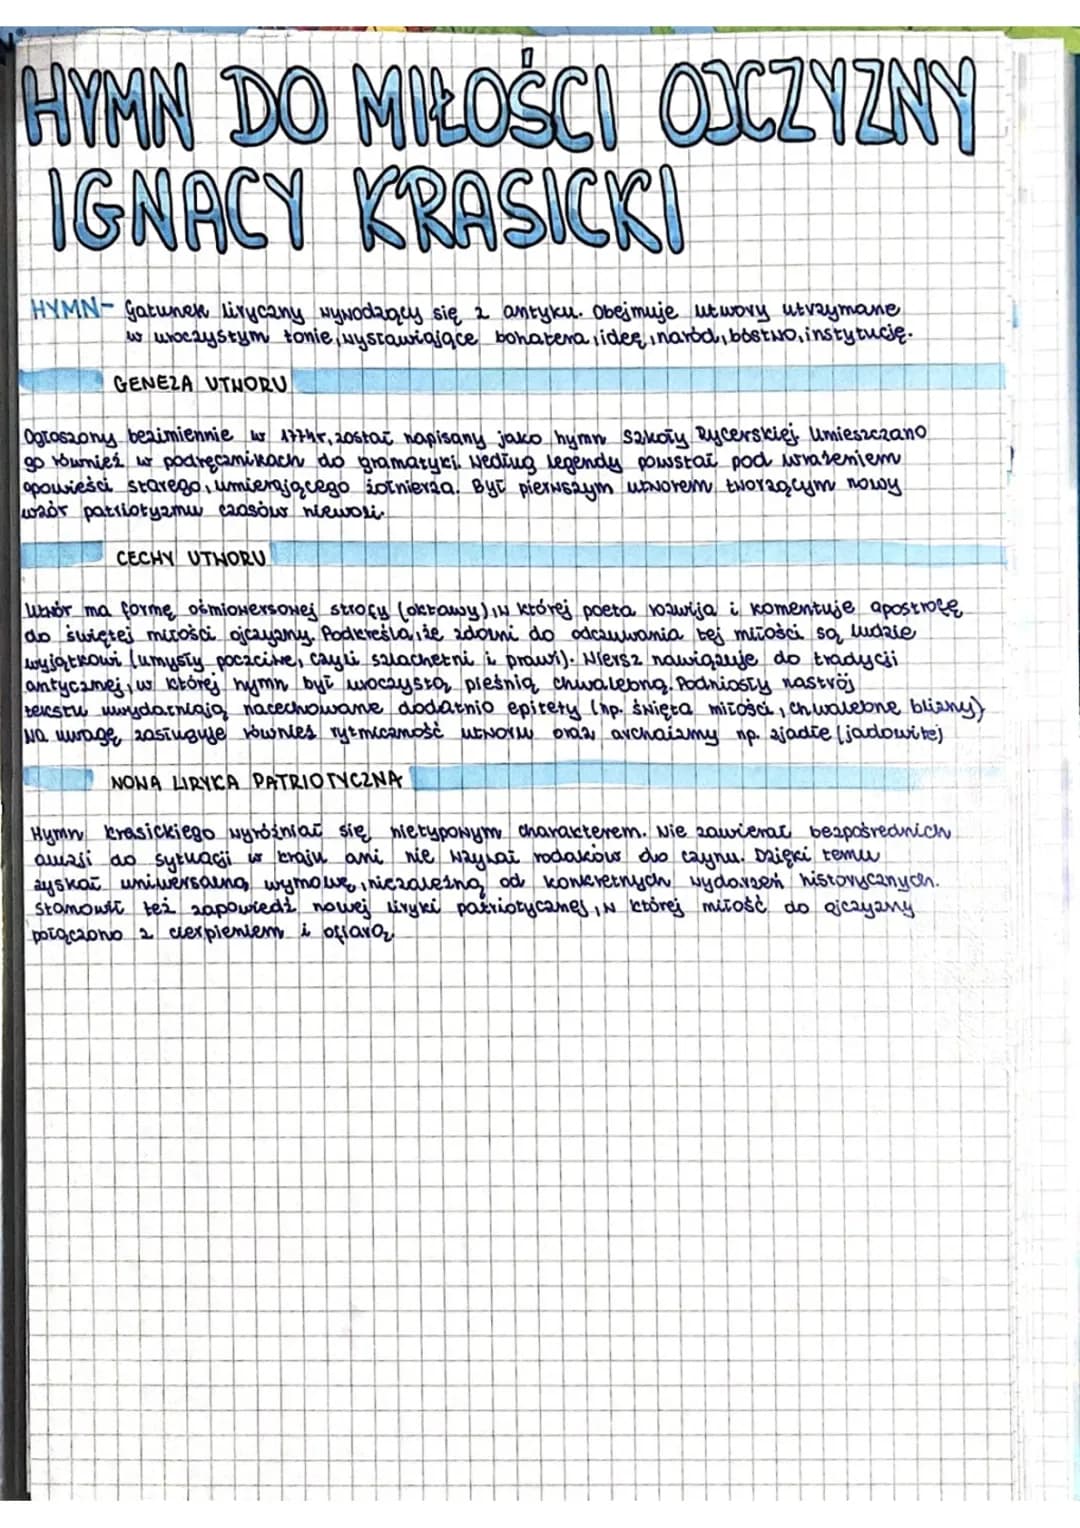 HYMN DO MIŁOŚCI OJCZYZNY
IGNACY KRASICKI
HYMN- Gatunek liryczny wywodzący się z antyku. Obejmuje utwory utrzymane
w uroczystym tonie, wystawiające bohatera, ideę, naród, bóstwo, instytucję.
GENEZA UTWORU
Ogłoszony bezimiennie w 1774r, został napisany jako hymn Szkoły Rycerskiej. Umieszczano
go również w podręcznikach do gramatyki. Według legendy powstał pod wrażeniem
opowieści starego, umierającego żołnierza. Był pierwszym utworem tworzącym nowy
wzór patriotyzmu czasów niewoli.
CECHY UTWORU
Utwór ma formę ośmiowersowej strofy (oktawy), w której poeta rozwija i komentuje apostrofę
do świętej miłości ojczyzny. Podkreśla, że zdolni do odczuwania tej miłości są ludzie
wyjątkowi (umysły poczciwe, czyli szlachetni i prawi). Wiersz nawiązuje do tradycji
antycznej, w której hymn był uroczystą pieśnią chwalebną. Podniosły nastrój
tekstu uwydatniają nacechowane dodatnio epitety (np. święta miłości, chwalebne blizny)
Na uwagę zasługuje również rytmiczność utworu oraz archaizmy np. zjadłe (jadowite)
NOWA LIRYKA PATRIOTYCZNA
Hymn Krasickiego wyróżniał się nietypowym charakterem. Nie zawierał bezpośrednich
aluzji do sytuacji w kraju ani nie wzywał rodaków do czynu. Dzięki temu
zyskał uniwersalną wymowę, niezależną od konkretnych wydarzeń historycznych.
Stanowił też zapowiedź nowej liryki patriotycznej, w której miłość do ojczyzny
połączono z cierpieniem i ofiarą